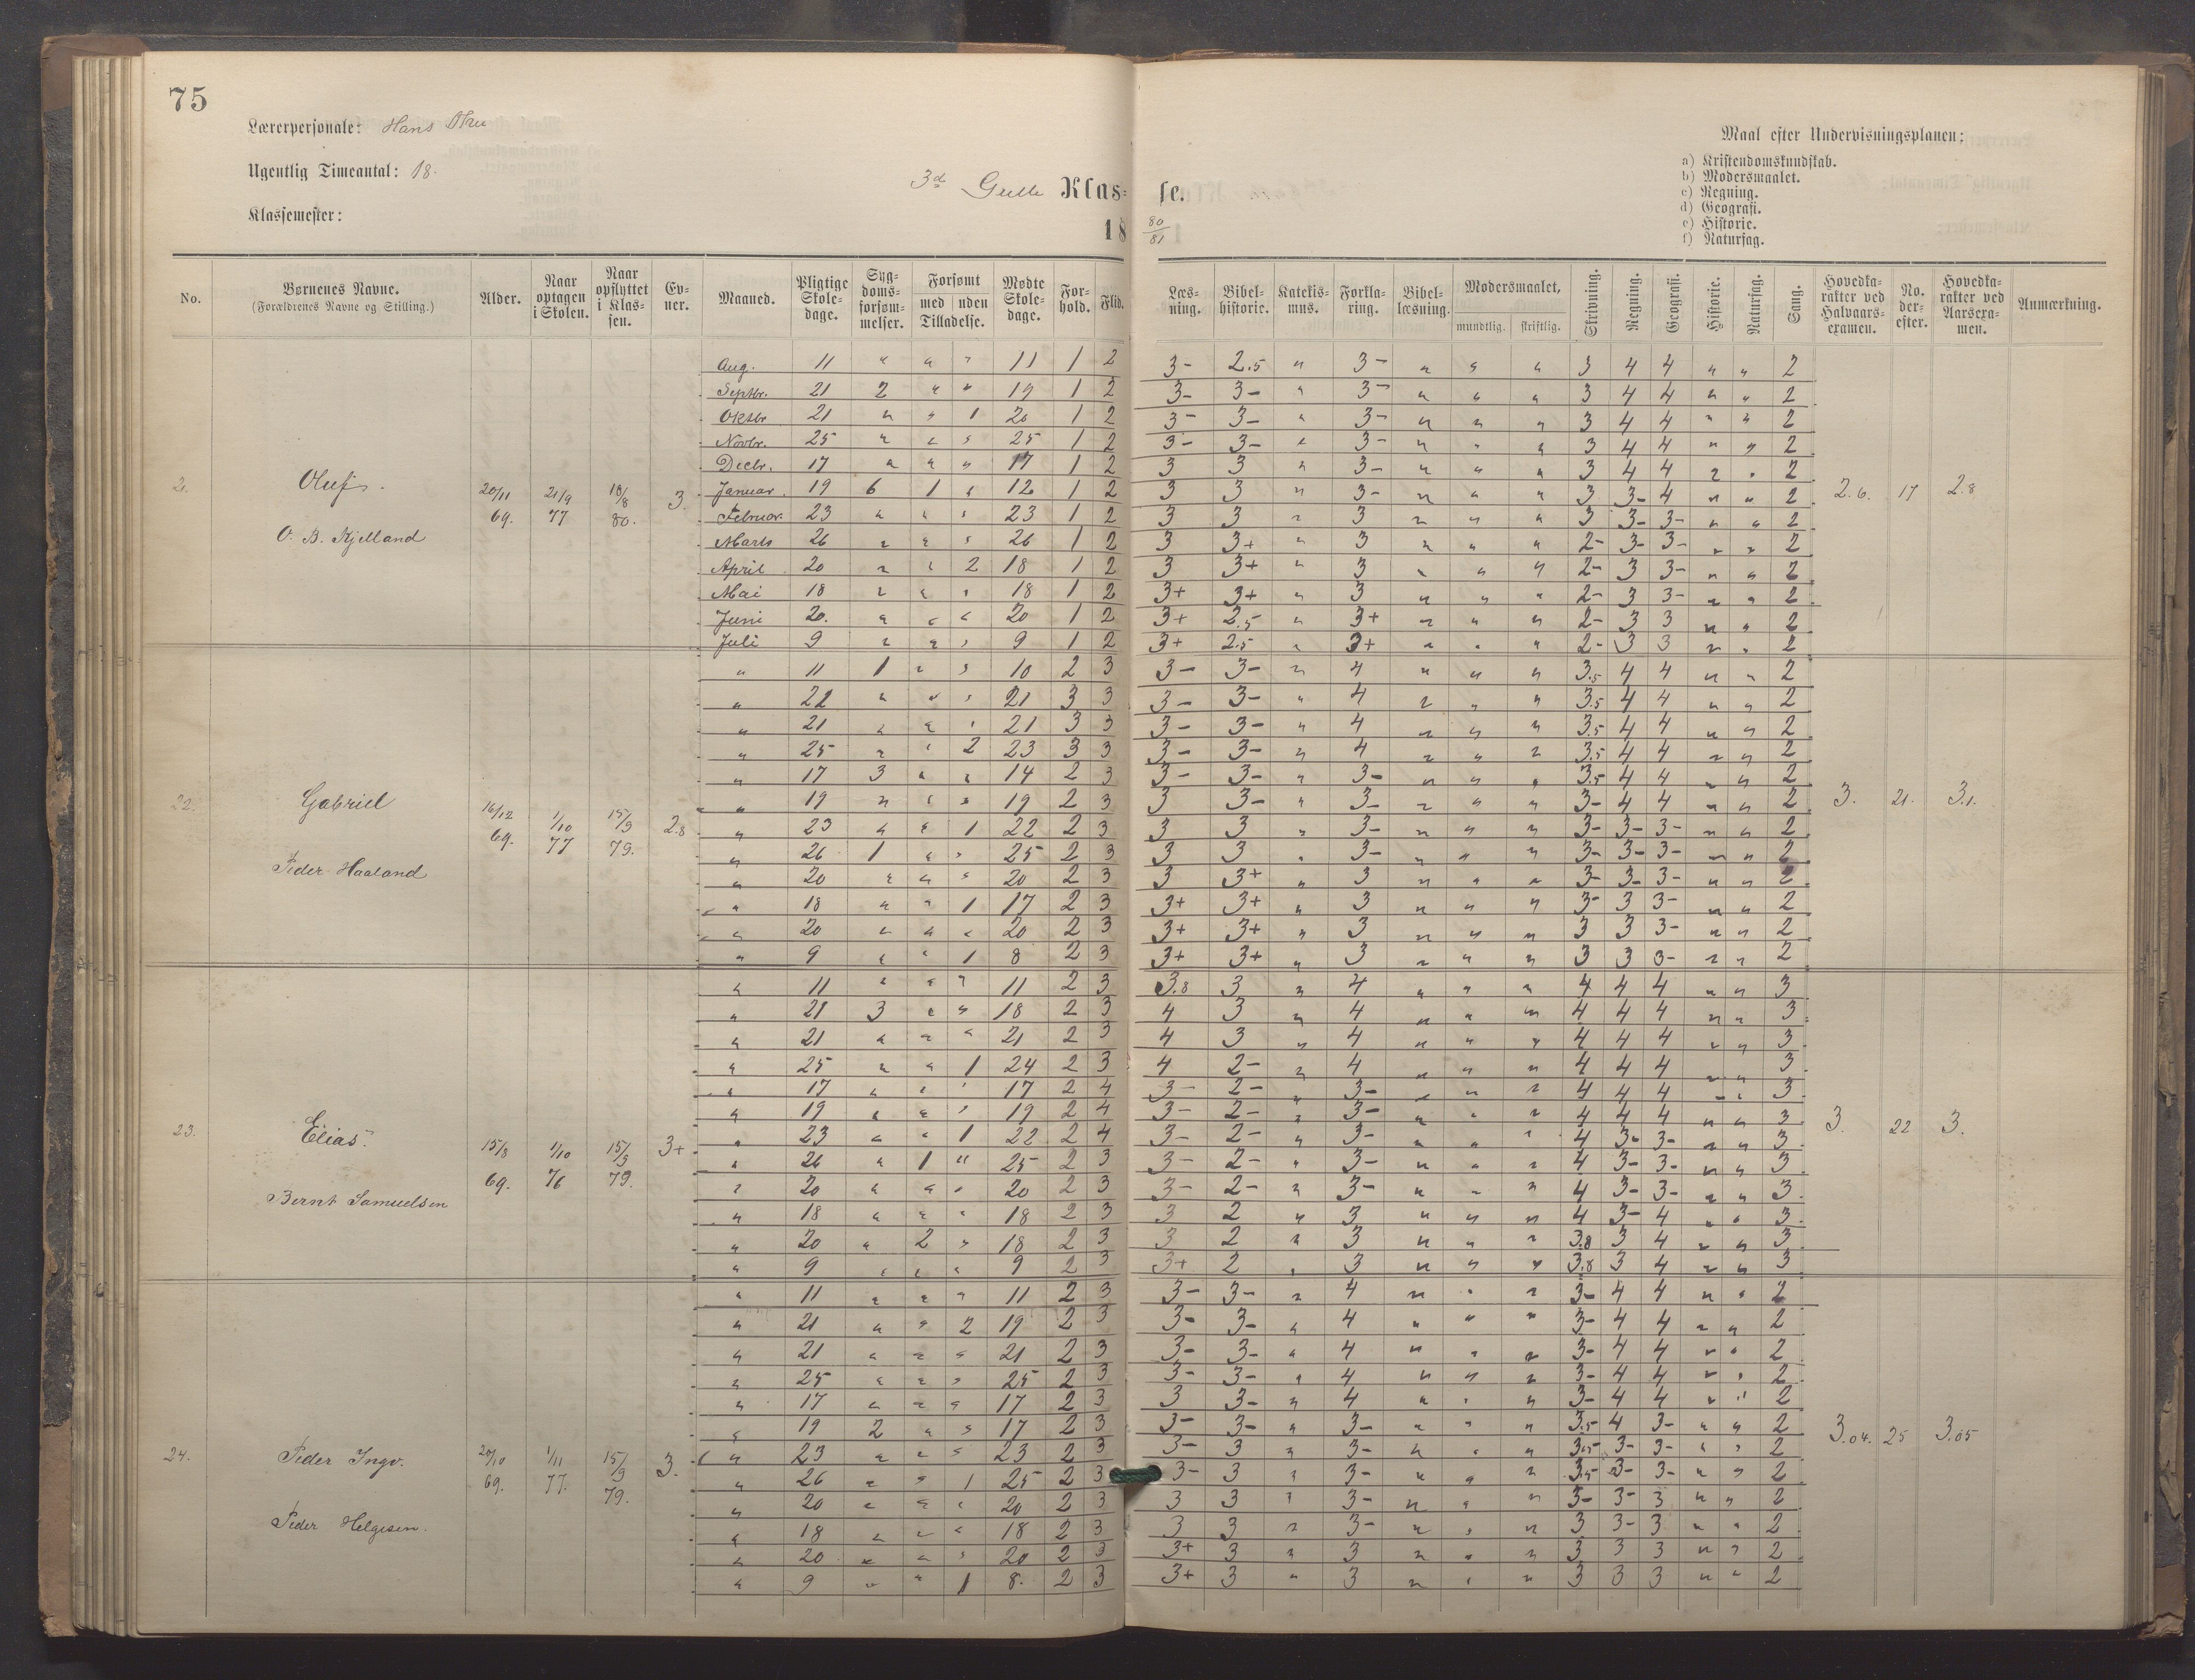 75
Lærerpersonale: Hans
Ugentlig Timeantal: 18.
Klassemester:
3d Klas=se.
18 80/81
Maal efter Undervisningsplanen:
a) Kristendomskundskab.
b) Modersmaalet.
c) Regning.
d) Geografi.
e) Historie.
f) Naturfag.
No. Børnenes Navne. (Forældrenes Navne og Stilling.) Alder. Naar optagen i Skolen. Naar opflyttet i Klassen. Evner. Maaned. Pligtige Skoledage. Sygdomsforsømmelser. Forsømt med uden Tilladelse. Mødte Skoledage. Forhold. Flid. Læsning. Bibelhistorie. Katekismus. Forklaring. Bibellæsning. Modersmaalet, mundtlig. skriftlig. Skrivning. Regning. Geografi. Historie. Naturfag. Sang. Hovedkarakter ved Halvaarsexamen. No. derefter. Hovedkarakter ved Aarsexamen. Anmærkning.
Aug. 11 " " " 11 1 2 3- 2.5 " 3- " " " 3 4 4 " " 2
Septbr. 21 2 " " 19 1 2 3- 3- " 3- " " " 3 4 4 " " 2
Oktbr 21 " " 1 20 1 2 3- 3- " 3- " " " 3 4 4 " " 2
Novbr. 25 " " " 25 1 2 3- 3- " 3- " " " 3 4 4 " " 2
Decbr. 17 " " " 17 1 2 3 3 " 3- " " " 3 4 4 " " 2
21. Oluf. 20/11 69. 21/9 77 18/8 80. 3. Januar. 19 6 1 " 12 1 2 3 3 " 3- " " " 3 3- 4 " " 2 2.6. 17 2.8
Februar. 23 " " " 23 1 2 3 3 " 3 " " " 3 3- 3- " " 2
O. B. Kjelland Marts 26 " " " 26 1 2 3 3+ " 3 " " " 2- 3- 3- " " 2
April 20 " " 2 18 1 2 3 3+ " 3 " " " 2- 3 3- " " 2
Mai 18 " " " 18 1 2 3+ 3+ " 3 " " " 2- 3 3- " " 2
Juni 20. " " " 20 1 2 3+ 2.5 " 3+ " " " 2- 3 3 " " 2
Juli 9 " " " 9 1 2 3+ 2.5 " 3+ " " " 2- 3 3 " " 2
" 11 1 " " 10 2 3 3- 3- " 4 " " " 3.5 4 4 " " 2
" 22 " " " 21 3 3 3- 3- " 4 " " " 3.5 4 4 " " 2
" 21 " " " 21 3 3 3- 3- " 4 " " " 3.5 4 4 " " 2
" 25 " " 2 23 3 3 3- 3- " 4 " " " 3.5 4 4 " " 2
" 17 3 " " 14 2 3 3- 3- " 3- " " " 3.5 4 4 " " 2
22. Gabriel 16/12 69. 1/10 77 15/9 79. 2.8 " 19 " " " 19 2 3 3 3- " 3- " " " 3- 4 4 " " 2 3. 21. 3.1.
" 23 " " 1 22 2 3 3 3 " 3- " " " 3- 3- 3- " " 2
Peder Haaland " 26 1 " " 25 2 3 3 3 " 3- " " " 3- 3- 3- " " 2
" 20 " " " 20 2 3 3 3+ " 3 " " " 3- 3- 3- " " 2
" 18 " " 1 17 2 3 3+ 3+ " 3 " " " 3- 3 3- " " 2
" 20 " " " 20 2 3 3+ 3+ " 3 " " " 3 3 3- " " 2
" 9 " " 1 8 2 3 3+ 3+ " 3 " " " 3 3 3- " " 2
" 11 " " " 11 2 3 3.8 3 " 4 " " " 4 4 4 " " 3
" 21 3 " " 18 2 3 4 3 " 4 " " " 4 4 4 " " 3
" 21 " " " 21 2 3 4 3 " 4 " " " 4 4 4 " " 3
" 25 " " 1 24 2 3 4 2- " 4 " " " 4 4 4 " " 3
" 17 " " " 17 2 4 3- 2- " 3- " " " 4 4 4 " " 3
" 19 " " " 19 2 4 3- 2- " 3- " " " 4 4 4 " " 3
23. Elias. 15/8 69. 1/10 76 15/9 79. 3+ " 23 " " 1 22 2 4 3- 2- " 3- " " " 4 3- 3- " " 3 3. 22 3.
" 26 " 1 " 25 2 3 3- 2- " 3- " " " 4 3- 3- " " 3
Bernt Samuelsen " 20 " " " 20 2 3 3- 2- " 3- " " " 4 3- 3- " " 3
" 18 " " " 18 2 3 3 2 " 3 " " " 4 3- 4 " " 3
" 20 " 2 " 18 2 3 3 2 " 3 " " " 3.8 3 4 " " 3
" 9 " " " 9 2 3 3+ 2 " 3 " " " 3.8 3 4 " " 3
" 11 " " " 11 2 3 3- 3- " 4 " " " 3- 4 4 " " 2
" 21 " " 2 19 2 3 3- 3- " 4 " " " 3- 4 4 " " 2
" 21 " " " 21 2 3 3- 3- " 4 " " " 3- 4 4 " " 2
" 25 " " " 25 2 3 3- 3- " 4 " " " 3- 4 4 " " 2
" 17 " " " 17 2 3 3 3- " 4 " " " 3- 4 4 " " 2
" 19 2 " " 17 2 3 3- 3- " 3- " " " 3.5 4 3- " " 2
24. Peder Ingv. 20/10 69. 1/11 77. 15/9 79. 3. " 23 " " " 23 2 3 3- 3 " 3- " " " 3.5 3- 3- " " 2 3.04. 25 3.05
" 26 " " 1 25 2 3 3- 3 " 3- " " " 3.5 3- 3- " " 2
Peder Helgesen. " 20 " " " 20 2 3 3 3 " 3- " " " 3- 3- 3 " " 2
" 18 " " " 18 2 3 3 3 " 3- " " " 3 3- 3 " " 2
" 20 " " " 20 2 3 3+ 3 " 3 " " " 3 3 3 " " 2
" 9 " " 1 8. 2 3 3+ 3 " 3 " " " 3 3 3 " " 2